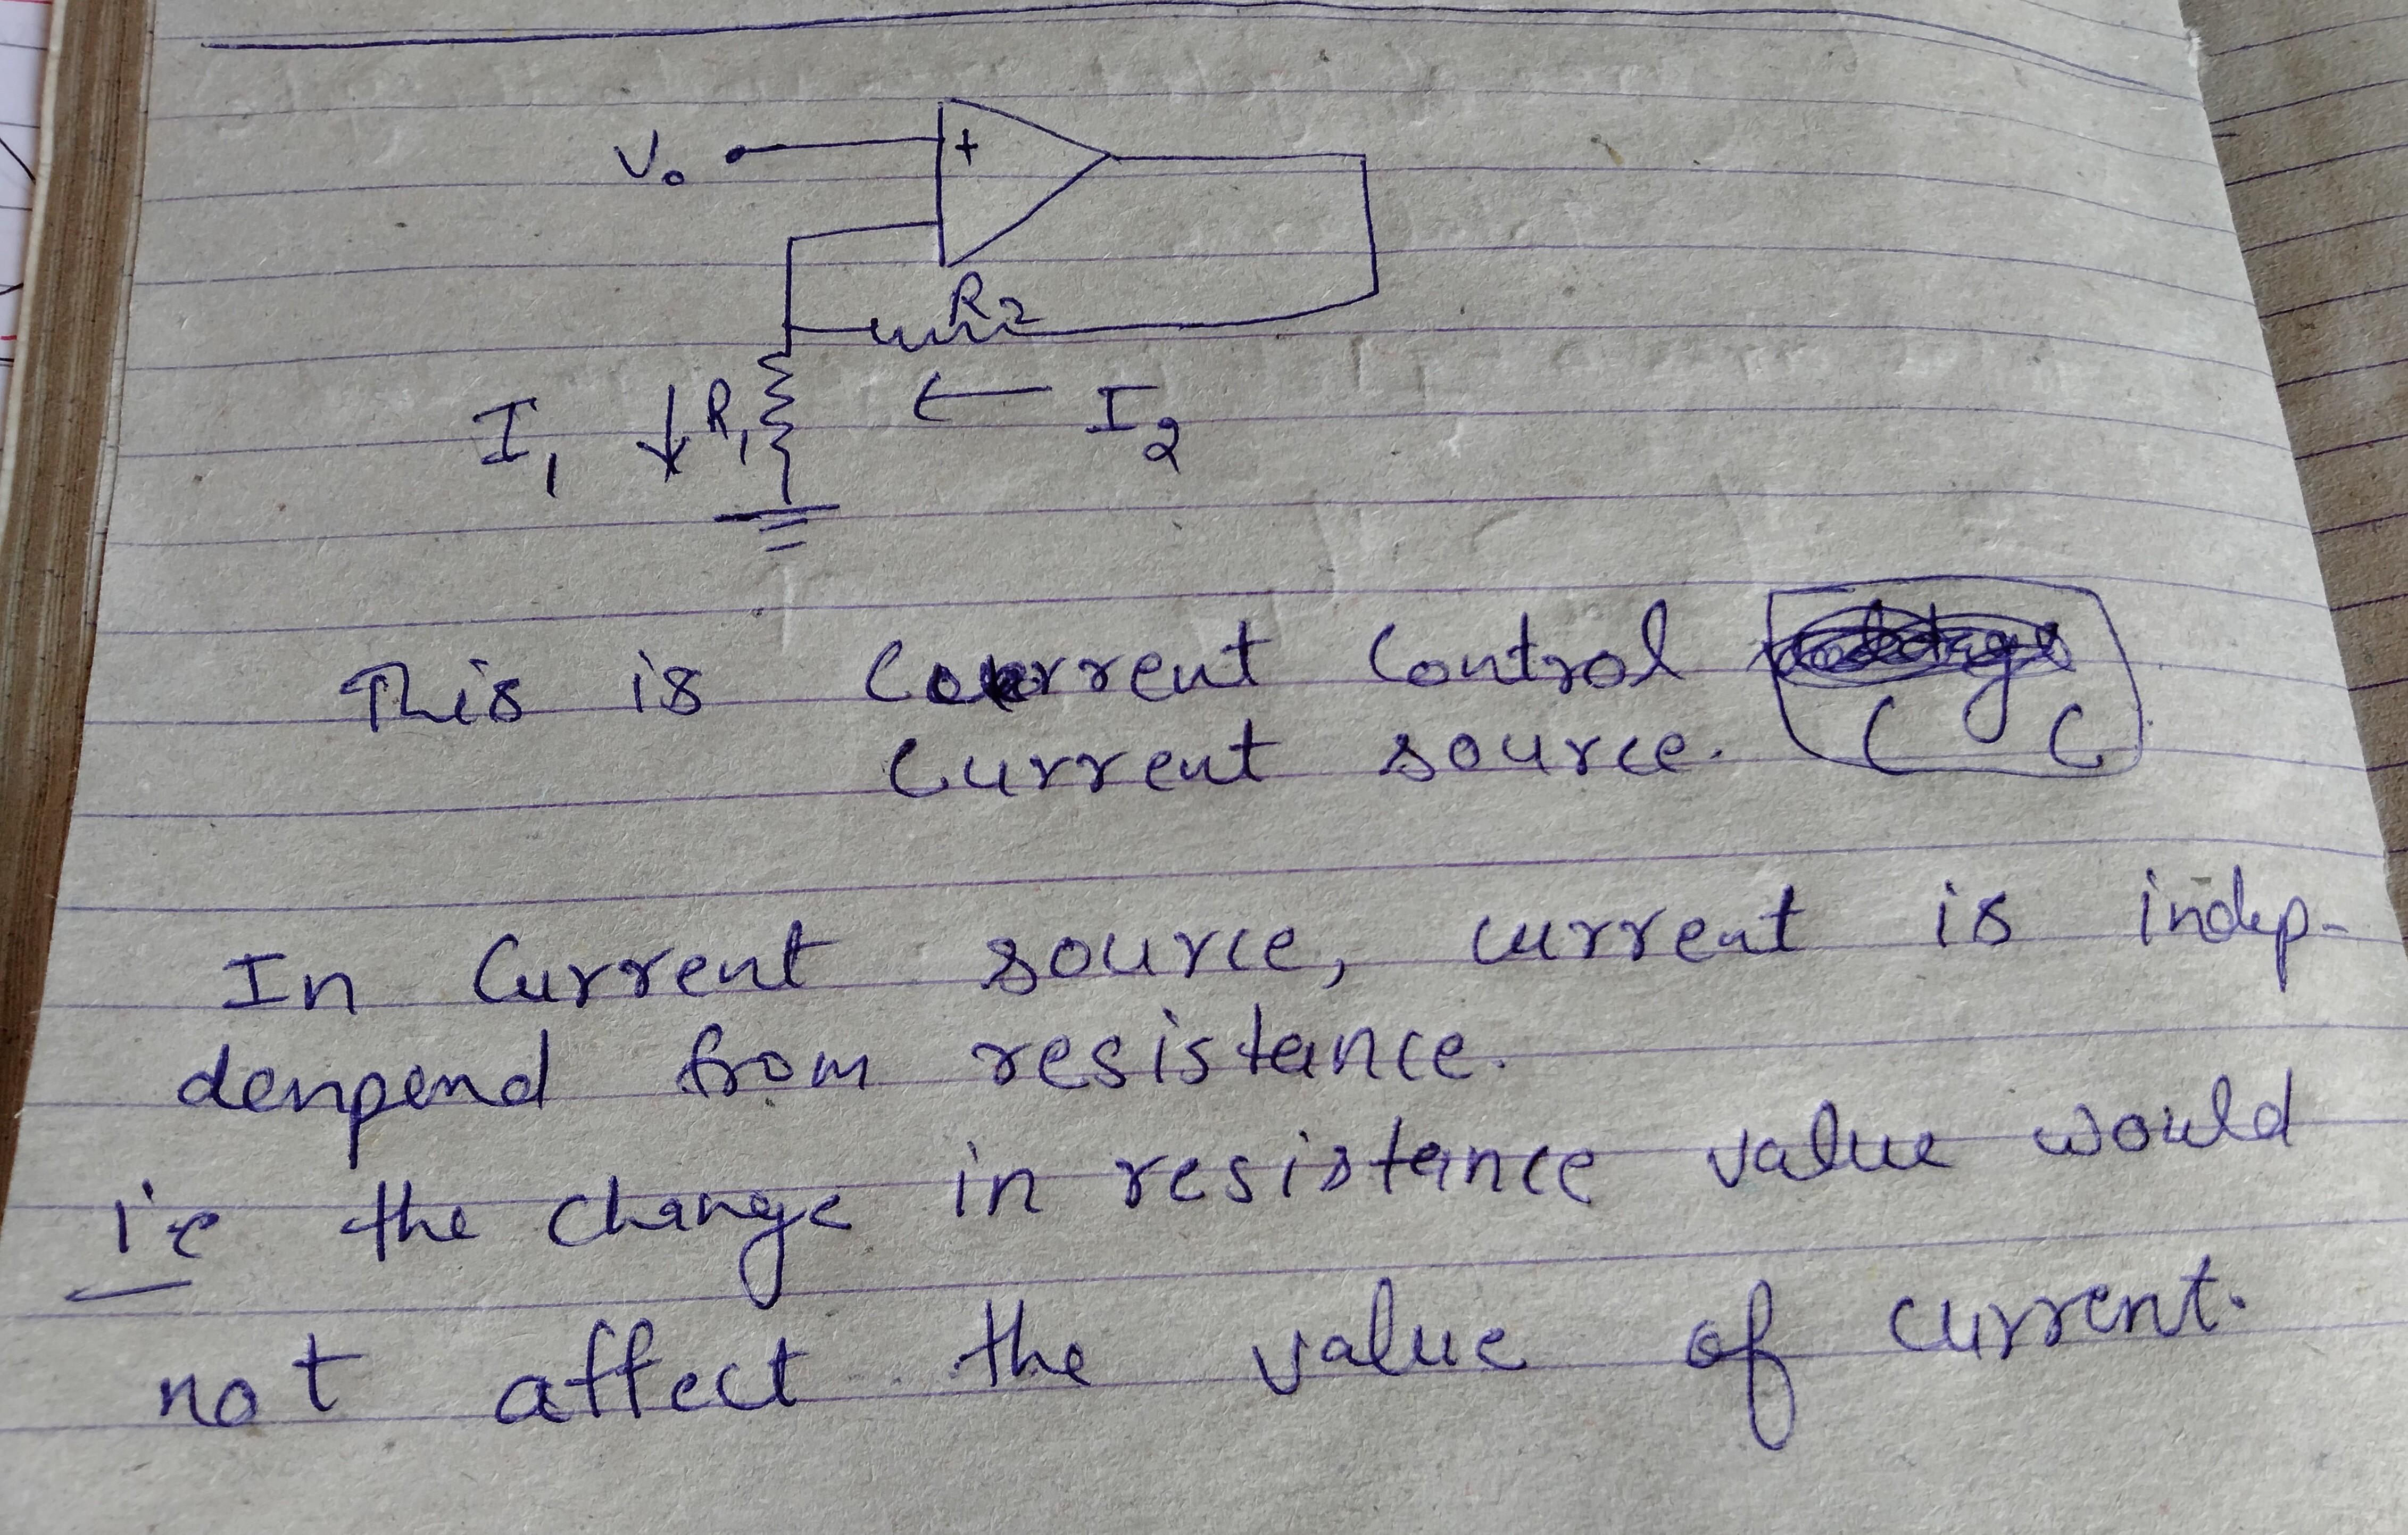 V₀
+
R₂
I₁ ↓ R₁ ← I₂
This is Current Control
Current source. C C
In Current source, current is indep-
denpend from resistance.
i'e the change in resistance value would
not affect the value of current.